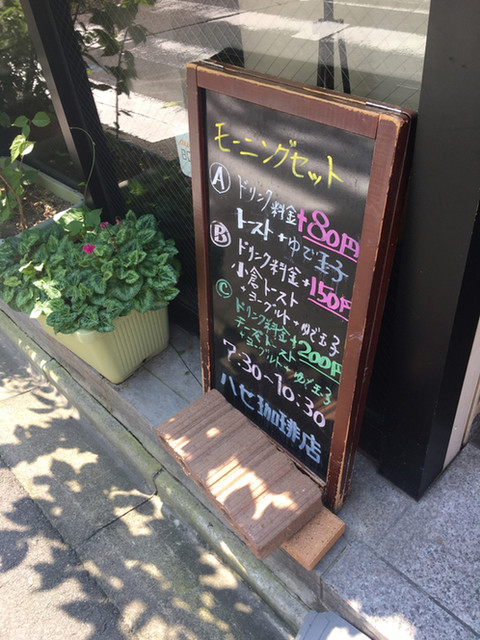 モーニングセット
Ⓐ ドリンク料金+80円
トースト+ゆで玉子
Ⓑ ドリンク料金+150円
小倉トースト
ヨーグルト+ゆで玉子
Ⓒ ドリンク料金+200円
チーズトースト
+ヨーグルト+ゆで玉子
7:30~10:30
ハセ珈琲店